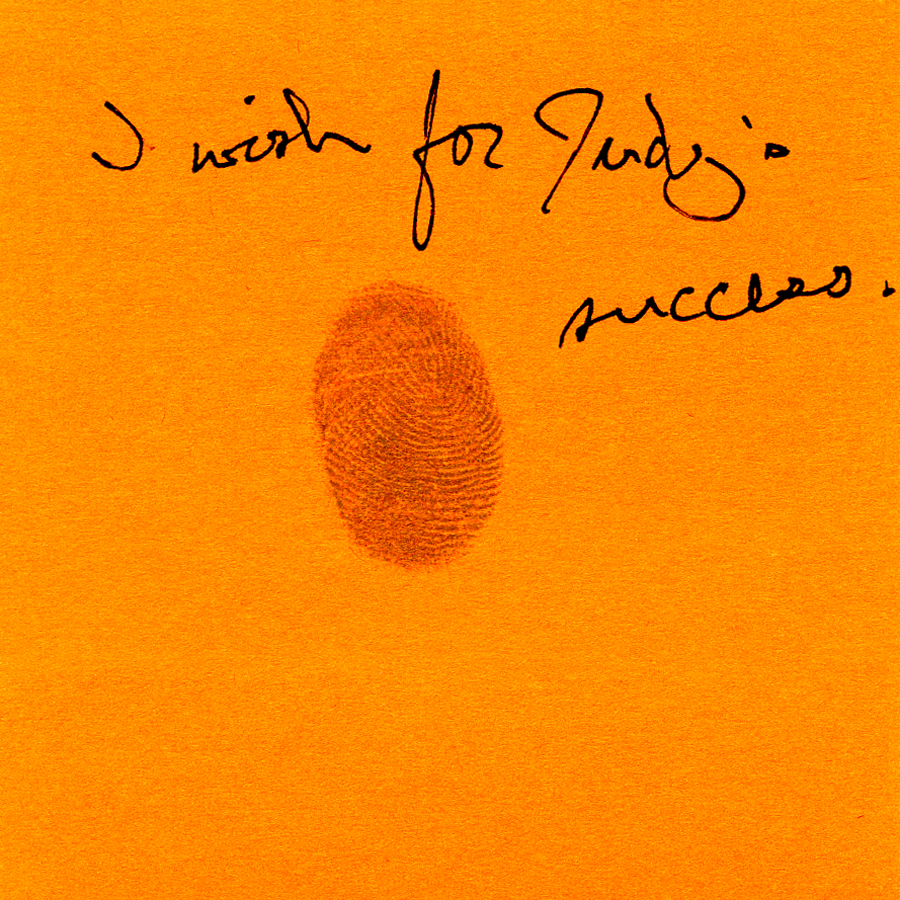 I wish for Judy's
success.